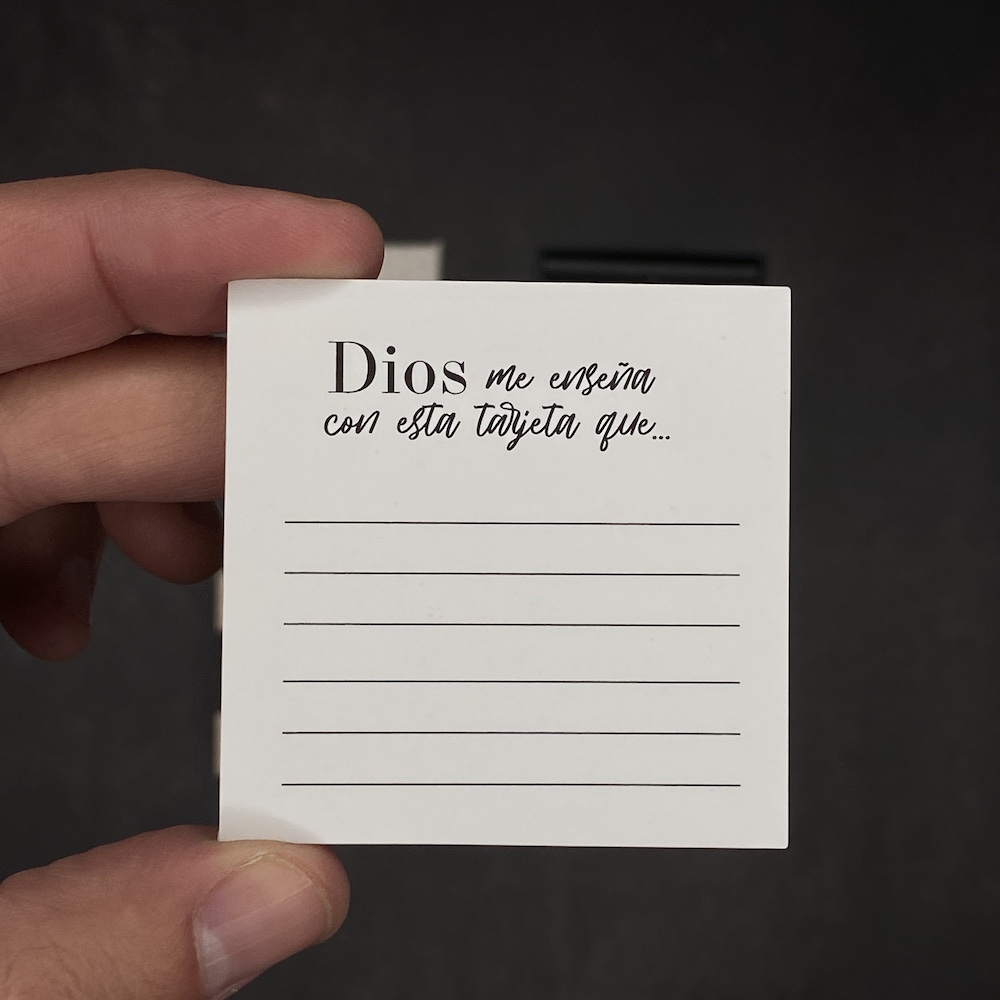 Dios me enseña
con esta tarjeta que...